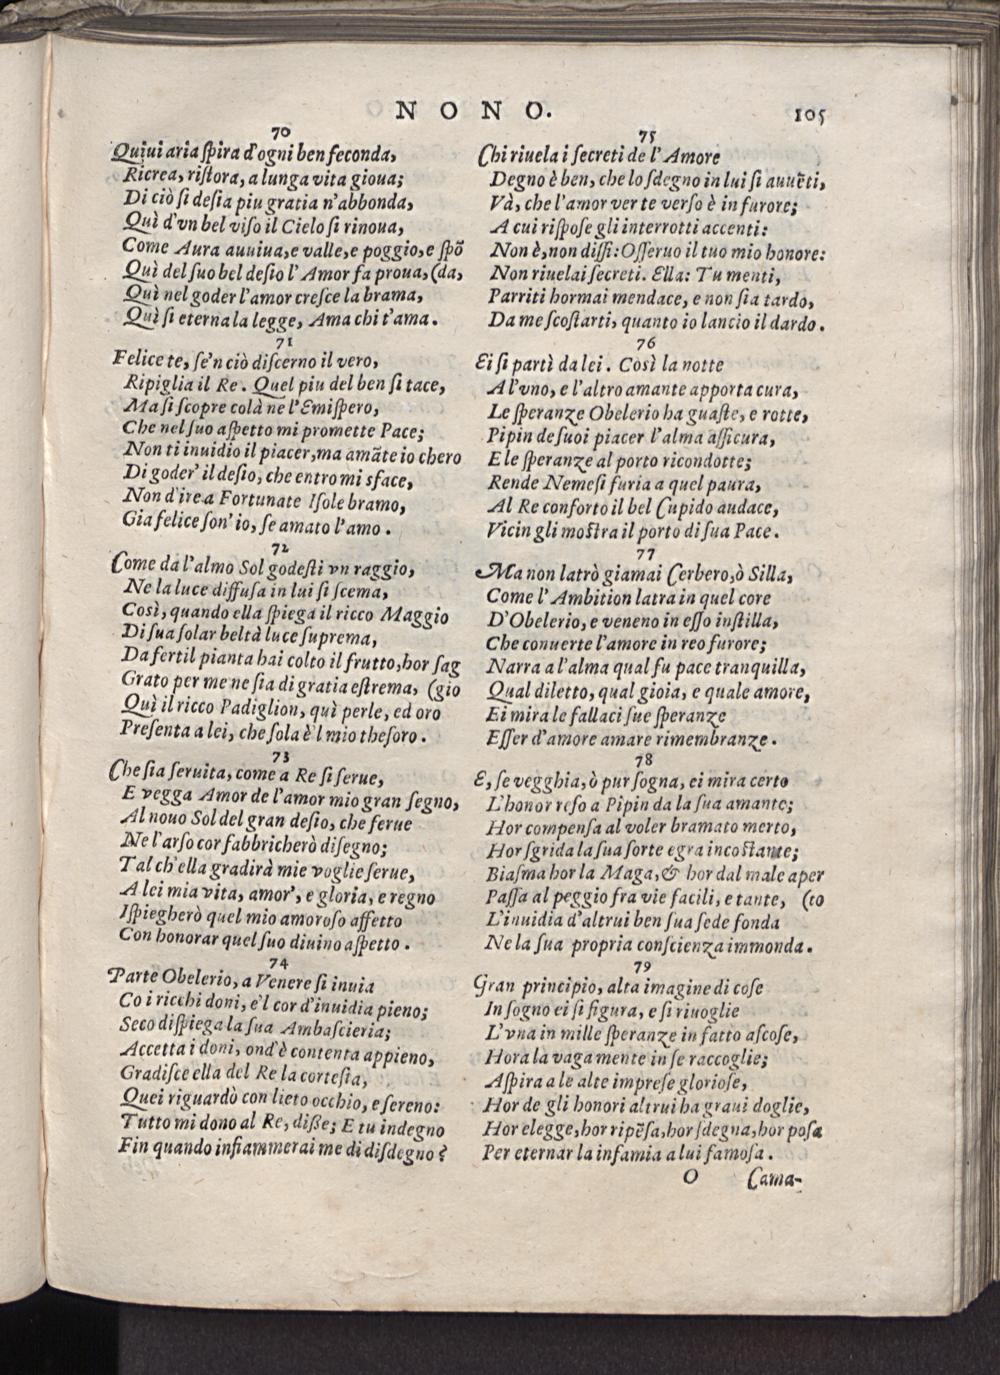 NONO.
105
70
Quiui aria ſpira d'ogni ben feconda,
Ricrea, riſtora, a lunga vita gioua;
Di ciò ſi deſia piu gratia n'abbonda,
Quì d'vn bel viſo il Cielo ſi rinoua,
Come Aura auuiua, e valle, e poggio, e ſpõ
Quì del ſuo bel deſio l'Amor fa proua, (da,
Quì nel goder l'amor creſce la brama,
Quì ſi eterna la legge, Ama chi t'ama.
71
Felice te, ſe'n ciò diſcerno il vero,
Ripiglia il Re. Quel piu del ben ſi tace,
Ma ſi ſcopre colà ne l'Emiſpero,
Che nel ſuo aſpetto mi promette Pace;
Non ti inuidio il piacer, ma amãte io chero
Di goder' il deſio, che entro mi sface,
Non d'ire a Fortunate Iſole bramo,
Gia felice ſon' io, ſe amato l'amo.
72
Come da l'almo Sol godeſti vn raggio,
Ne la luce diffuſa in lui ſi ſcema,
Così, quando ella ſpiega il ricco Maggio
Di ſua ſolar beltà luce ſuprema,
Da fertil pianta hai colto il frutto, hor ſag
Grato per me ne ſia di gratia eſtrema, (gio
Quì il ricco Padiglion, quì perle, ed oro
Preſenta a lei, che ſola è'l mio theſoro.
73
Che ſia ſeruita, come a Re ſi ſerue,
E vegga Amor de l'amor mio gran ſegno,
Al nouo Sol del gran deſio, che ferue
Ne l'arſo cor fabbricherò diſegno;
Tal ch'ella gradirà mie voglie ſerue,
A lei mia vita, amor', e gloria, e regno
Iſpiegherò quel mio amoroſo affetto
Con honorar quel ſuo diuino aſpetto.
74
Parte Obelerio, a Venere ſi inuia
Co i ricchi doni, e'l cor d'inuidia pieno;
Seco diſpiega la ſua Ambaſcieria;
Accetta i doni, ond'è contenta appieno,
Gradiſce ella del Re la corteſia,
Quei riguardò con lieto occhio, e ſereno:
Tutto mi dono al Re, diße; E tu indegno
Fin quando infiammerai me di diſdegno?
75
Chi riuela i ſecreti de l'Amore
Degno è ben, che lo ſdegno in lui ſi auuẽti,
Và, che l'amor ver te verſo è in furore;
A cui riſpoſe gli interrotti accenti:
Non è, non diſſi: Oſſeruo il tuo mio honore:
Non riuelai ſecreti. Ella: Tu menti,
Parriti hormai mendace, e non ſia tardo,
Da me ſcoſtarti, quanto io lancio il dardo.
76
Ei ſi partì da lei. Così la notte
A l'vno, e l'altro amante apporta cura,
Le ſperanze Obelerio ha guaſte, e rotte,
Pipin de ſuoi piacer l'alma aſſicura,
E le ſperanze al porto ricondotte;
Rende Nemeſi furia a quel paura,
Al Re conforto il bel Cupido audace,
Vicin gli moſtra il porto di ſua Pace.
77
Ma non latrò giamai Cerbero, ò Silla,
Come l'Ambition latra in quel core
D'Obelerio, e veneno in eſſo inſtilla,
Che conuerte l'amore in reo furore;
Narra a l'alma qual fu pace tranquilla,
Qual diletto, qual gioia, e quale amore,
Ei mira le fallaci ſue ſperanze
Eſſer d'amore amare rimembranze.
78
E, ſe vegghia, ò pur ſogna, ei mira certo
L'honor reſo a Pipin da la ſua amante;
Hor compenſa al voler bramato merto,
Hor ſgrida la ſua ſorte egra incoſtante;
Biaſma hor la Maga, & hor dal male aper
Paſſa al peggio fra vie facili, e tante, (to
L'inuidia d'altrui ben ſua ſede fonda
Ne la ſua propria conſcienza immonda.
79
Gran principio, alta imagine di coſe
In ſogno ei ſi figura, e ſi riuoglie
L'vna in mille ſperanze in fatto aſcoſe,
Hora la vaga mente in ſe raccoglie;
Aſpira a le alte impreſe glorioſe,
Hor de gli honori altrui ha graui doglie,
Hor elegge, hor ripẽſa, hor ſdegna, hor poſa
Per eternar la infamia a lui famoſa.
O
Cama-